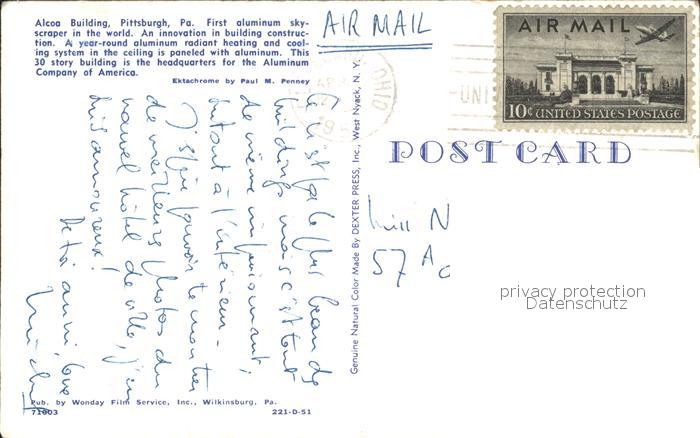 Alcoa Building, Pittsburgh, Pa. First aluminum sky-
scraper in the world. An innovation in building construc-
tion. A year-round aluminum radiant heating and cool-
ing system in the ceiling is paneled with aluminum. This
30 story building is the headquarters for the Aluminum
Company of America.
Ektachrome by Paul M. Penney
AIR MAIL
AIR MAIL
10¢ UNITED STATES POSTAGE
OHIO
APR
POST CARD
Genuine Natural Color Made By DEXTER PRESS, Inc., West Nyack, N. Y.
Ce n'est pas le plus beau des
buildings mais c'est tout
de même impressionnant,
surtout à l'intérieur.
J'espère pouvoir te montrer
de merveilleuses photos du
nouvel hôtel de ville, j'en
suis amoureux!
De toi aussi,
Miss N
57 Ac
privacy protection
Datenschutz
Pub. by Wonday Film Service, Inc., Wilkinsburg, Pa.
71003
221-D-51